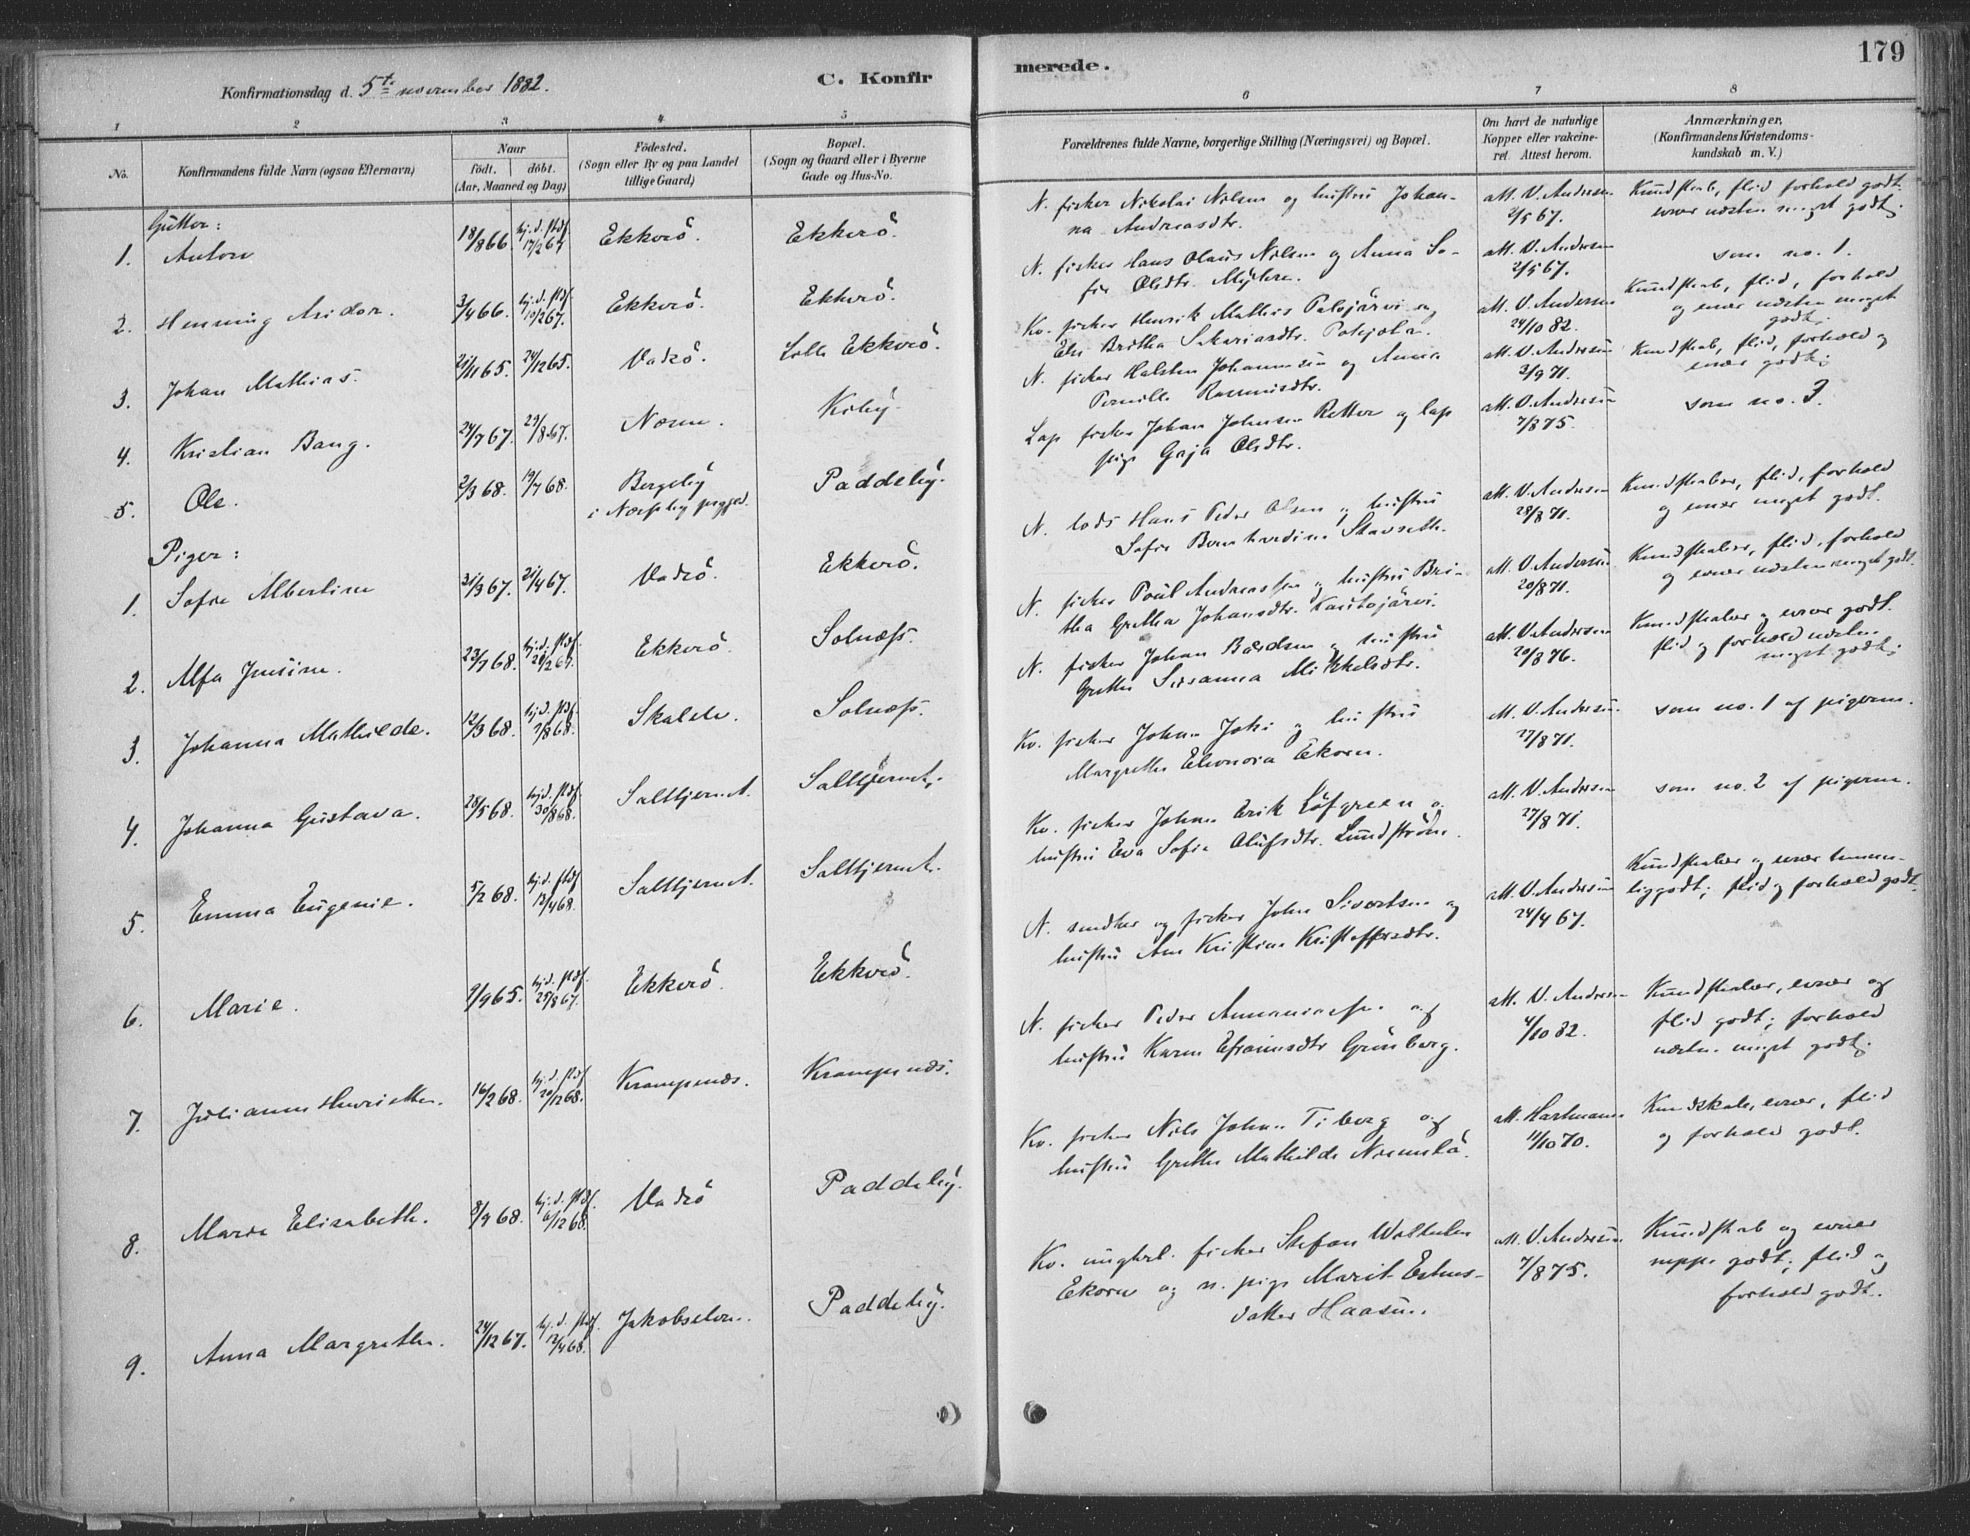 179
Konfirmationsdag d. 5te november 1882.
C. Konfirmerede.
1 2 3 4 5 6 7 8
No.
Konfirmandens fulde Navn (ogsaa Efternavn)
Naar
födt. döbt.
(Aar, Maaned og Dag)
Födested.
(Sogn eller By og paa Landet
tillige Gaard)
Bopæl.
(Sogn og Gaard eller i Byerne
Gade og Hus-No.
Forældrenes fulde Navne, borgerlige Stilling (Næringsvei) og Bopæl.
Om havt de naturlige
Kopper eller vakcine-
ret. Attest herom.
Anmærkninger,
(Konfirmandens Kristendoms-
kundskab m. V.)
Gutter:
1. Anton 18/8 66. hj. d. stdf. 17/2 67 Ekkerö. Ekkerö.
N. fisker Nikolai Nilsen og hustru Johan-
na Andreasdtr.
att. V. Andersen
2/5 67.
Kundskab, flid forhold godt.
evner næsten meget godt.
2. Henning Aridor. 3/4 66. hj. d. stdf. 10/2 67. Ekkerö. Ekkerö.
N. fisker Hans Olaus Nilsen og Anna So-
fie Olsdtr. Myhre.
att. V. Andersen
2/5 67.
som no. 1.
3. Johan Mathias. 21/11 65. 24/12 65. Vadsö. Lille Ekkerö.
Kv. fisker Henrik Mathis Palojärvi og
Els Britha Sakariasdtr. Pohjola.
att. V. Andersen
24/10 82.
Kundskab, flid, forhold
og evner næsten meget
godt.
4. Kristian Bang. 24/7 67. 29/8 67. Næsse. Kiby.
N. fisker Halsten Johannesen og Anna
Pernille Rasmusdtr.
att. V. Andersen
3/9 71.
Kundskab, flid, forhold og
evner godt.
5. Ole. 2/3 68. 19/7 68. Bergeby
i Næsseby prgjd. Paddeby.
Lap fisker Johan Johnsen Retter og lap
pige Gaja Olsdtr.
att. V. Andersen
7/8 75.
som no. 3.
Piger:
1. Sofie Albertine 31/3 67. 21/4 67. Vadsö. Ekkerö.
N. lods Hans Peder Olsen og hustru
Sofie Bernhardine Stavseth.
att. V. Andersen
28/8 71.
Kundskaber, flid, forhold
og evner meget godt.
2. Alfa Jensine. 23/7 68. hj. d. stdf. Ekkerö. Solnæss.
N. fisker Poul Andreassen og hustru Bri-
tha Gretha Johansdtr. Kautojärvi.
att. V. Andersen
20/8 71.
Kundskaber, flid, forhold
og evner næsten meget godt.
3. Johanna Mathilde. 12/3 68. hj. d. stdf. 7/8 68. Skalelv. Solnæss.
N. fisker Johan Bærdsen og hustru
Grethe Susanna Mikkelsdtr.
att. V. Andersen
20/8 76.
Kundskaber og evner godt.
flid og forhold næsten
meget godt.
4. Johanna Gustava. 28/5 68. hj. d. stdf. 30/8 68. Saltkjernet. Saltkjernet.
Kv. fisker Johan Joki og hustru
Margrethe Eleonora Ekorn.
att. V. Andersen
27/8 71.
som no. 1 af pigerne.
5. Emma Eugenie. 5/2 68. hj. d. stdf 13/4 68. Saltkjernet. Saltkjernet.
Kv. fisker Johan Erik Löfgreen og
hustru Eva Sofie Olufsdtr. Lundström.
att. V. Andersen
27/8 71.
som no. 2 af pigerne.
6. Marie. 9/9 65. hj. d. stdf. 25/8 67. Ekkerö. Ekkerö.
N. smedker og fisker John Sivertsen og
hustru Ane Kristine Kristoffersdtr.
att. V. Andersen
24/4 67.
Kundskaber og evner temme-
lig godt; flid og forhold godt.
7. Julianne Henriette. 16/2 68. hj. d. stdf 20/12 68. Krampenæs. Krampenæs.
N. fisker Peder Annaniassen og
hustru Karen Efraimsdtr Grönberg.
att. V. Andersen
4/10 82.
Kundskaber, evner og
flid godt; forhold
næsten meget godt.
8. Marie Elisabeth. 8/9 68. hj. d. stdf. 6/12 68. Vadsö Paddeby.
Kv. fisker Nils Johan Tiberg og
hustru Grethe Mathilde Niemelä.
att. Hartmann
11/10 70.
Kundskab, evner, flid
og forhold godt.
9. Anna Margrethe. 24/12 67. hj. d. stdf. 12/4 68. Jakobselven. Paddeby.
Kv. ungkrl. fisker Stefan Wilhelm
Ekorn og n. pige Marit Esbens-
datter Haasen.
att. V. Andersen
7/8 75.
Kundskab og evner
neppe godt; flid og
forhold godt.